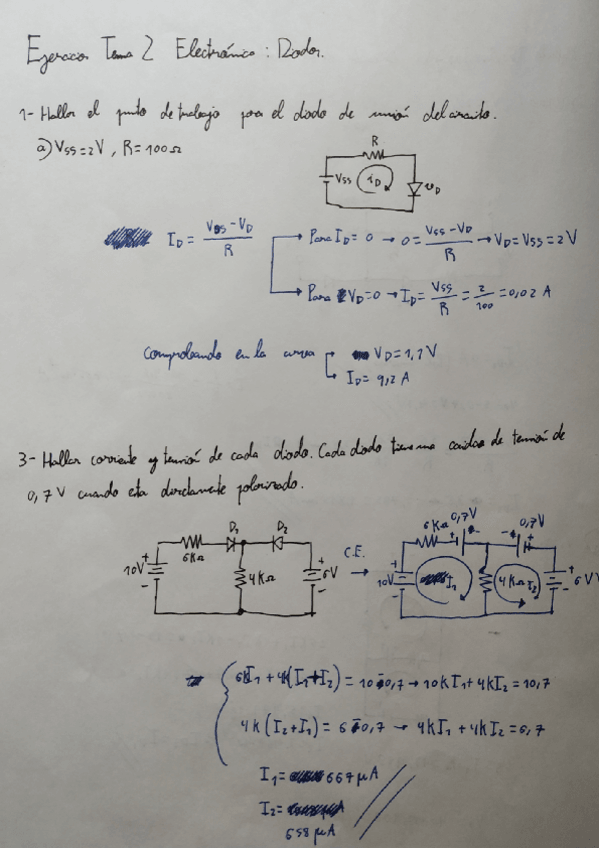 Ejercicios Tema 2 Electrónica: Diodos.
1- Hallar el punto de trabajo para el diodo de unión del circuito.
a) Vss = 2V, R = 100Ω
R
Vss
iD
vD
ID = (Vss - VD)/R
Para ID = 0 → 0 = (Vss - VD)/R → VD = Vss = 2V
Para VD = 0 → ID = Vss/R = 2/100 = 0,02 A
Comprobando en la curva
VD = 1,1 V
ID = 9,2 A
3- Hallar corriente y tensión de cada diodo. Cada diodo tiene una caidas de tensión de
0,7 V cuando esta directamente polarizado.
10V + - 6KΩ D1 D2 4KΩ + - 6V
C.E. →
10V + - 6KΩ 0,7V + - I1 4KΩ I2 - + 0,7V + - 6V
6KI1 + 4K(I1+I2) = 10-0,7 → 10KI1 + 4KI2 = 10,7
4K(I2+I1) = 6-0,7 → 4KI1 + 4KI2 = 6,7
I1 = 667 μA
I2 =
658 μA